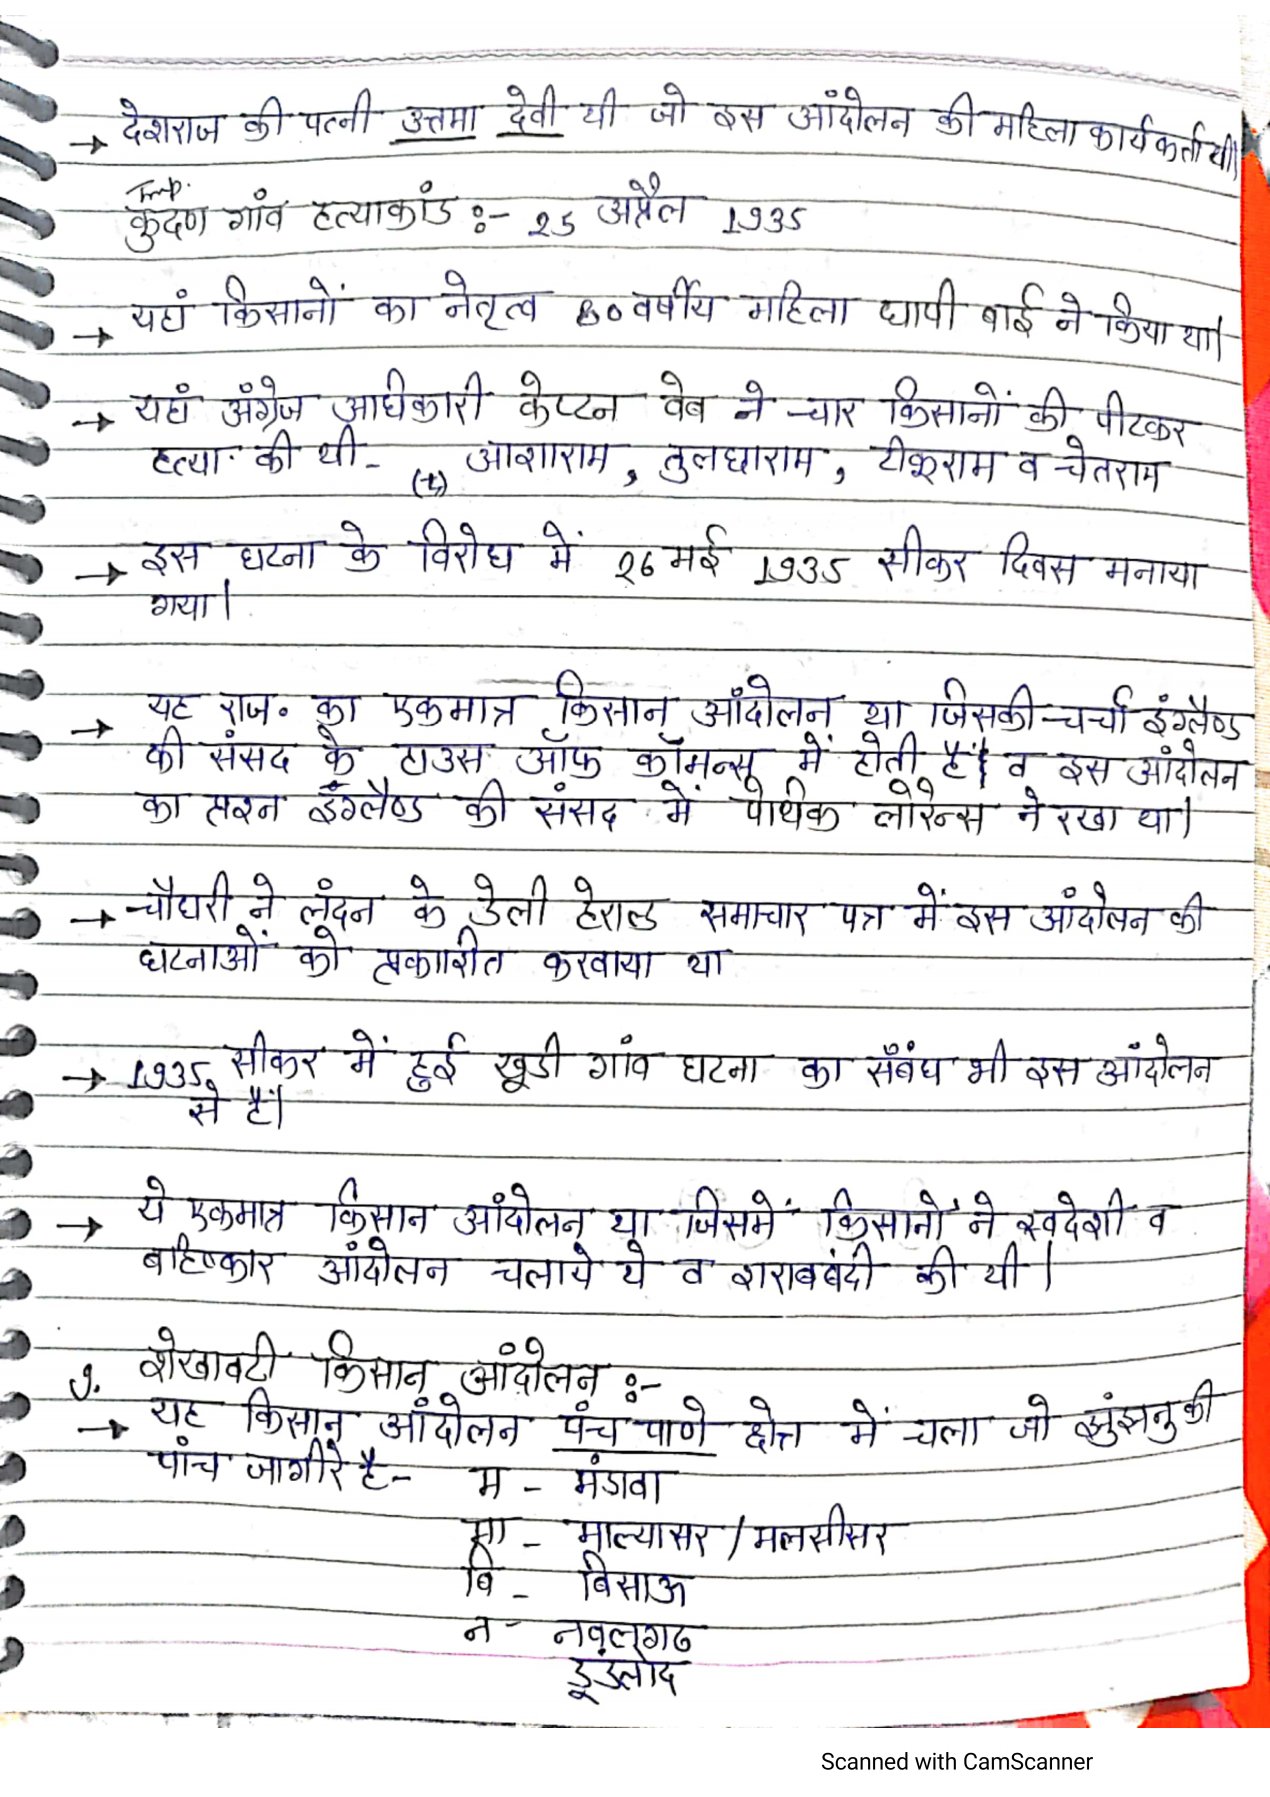 → देशराज की पत्नी उत्तमा देवी थी जो इस आंदोलन की महिला कार्यकर्ता थी।
Imp.
कुदण गांव हत्याकांड :- 25 अप्रैल 1935
→ यहां किसानों का नेतृत्व 80 वर्षीय महिला धापी बाई ने किया था।
→ यहां अंग्रेज अधिकारी केप्टन वेब ने चार किसानों की पीटकर
हत्या की थी- आशाराम, तुलछाराम, टीकूराम व चेतराम
→ इस घटना के विरोध में 26 मई 1935 सीकर दिवस मनाया
गया।
→ यह राज. का एकमात्र किसान आंदोलन था जिसकी चर्चा इंग्लैण्ड
की संसद के हाउस ऑफ कॉमन्स में होती है। व इस आंदोलन
का प्रश्न इंग्लैण्ड की संसद में पेथिक लोरेन्स ने रखा था।
→ चौधरी ने लंदन के डेली हेराल्ड समाचार पत्र में इस आंदोलन की
घटनाओं को प्रकाशित करवाया था
→ 1935 सीकर में हुई खूडी गांव घटना का संबंध भी इस आंदोलन
से है।
→ ये एकमात्र किसान आंदोलन था जिसमें किसानों ने स्वदेशी व
बहिष्कार आंदोलन चलाये थे व शराबबंदी की थी।
9. शेखावटी किसान आंदोलन :-
→ यह किसान आंदोलन पंच पाणे क्षेत्र में चला जो झुंझनु की
पांच जागीरे है- म - मंडावा
मा - माल्यासर / मलसीसर
बि - बिसाऊ
न - नवलगढ
डूंडलोद
Scanned with CamScanner